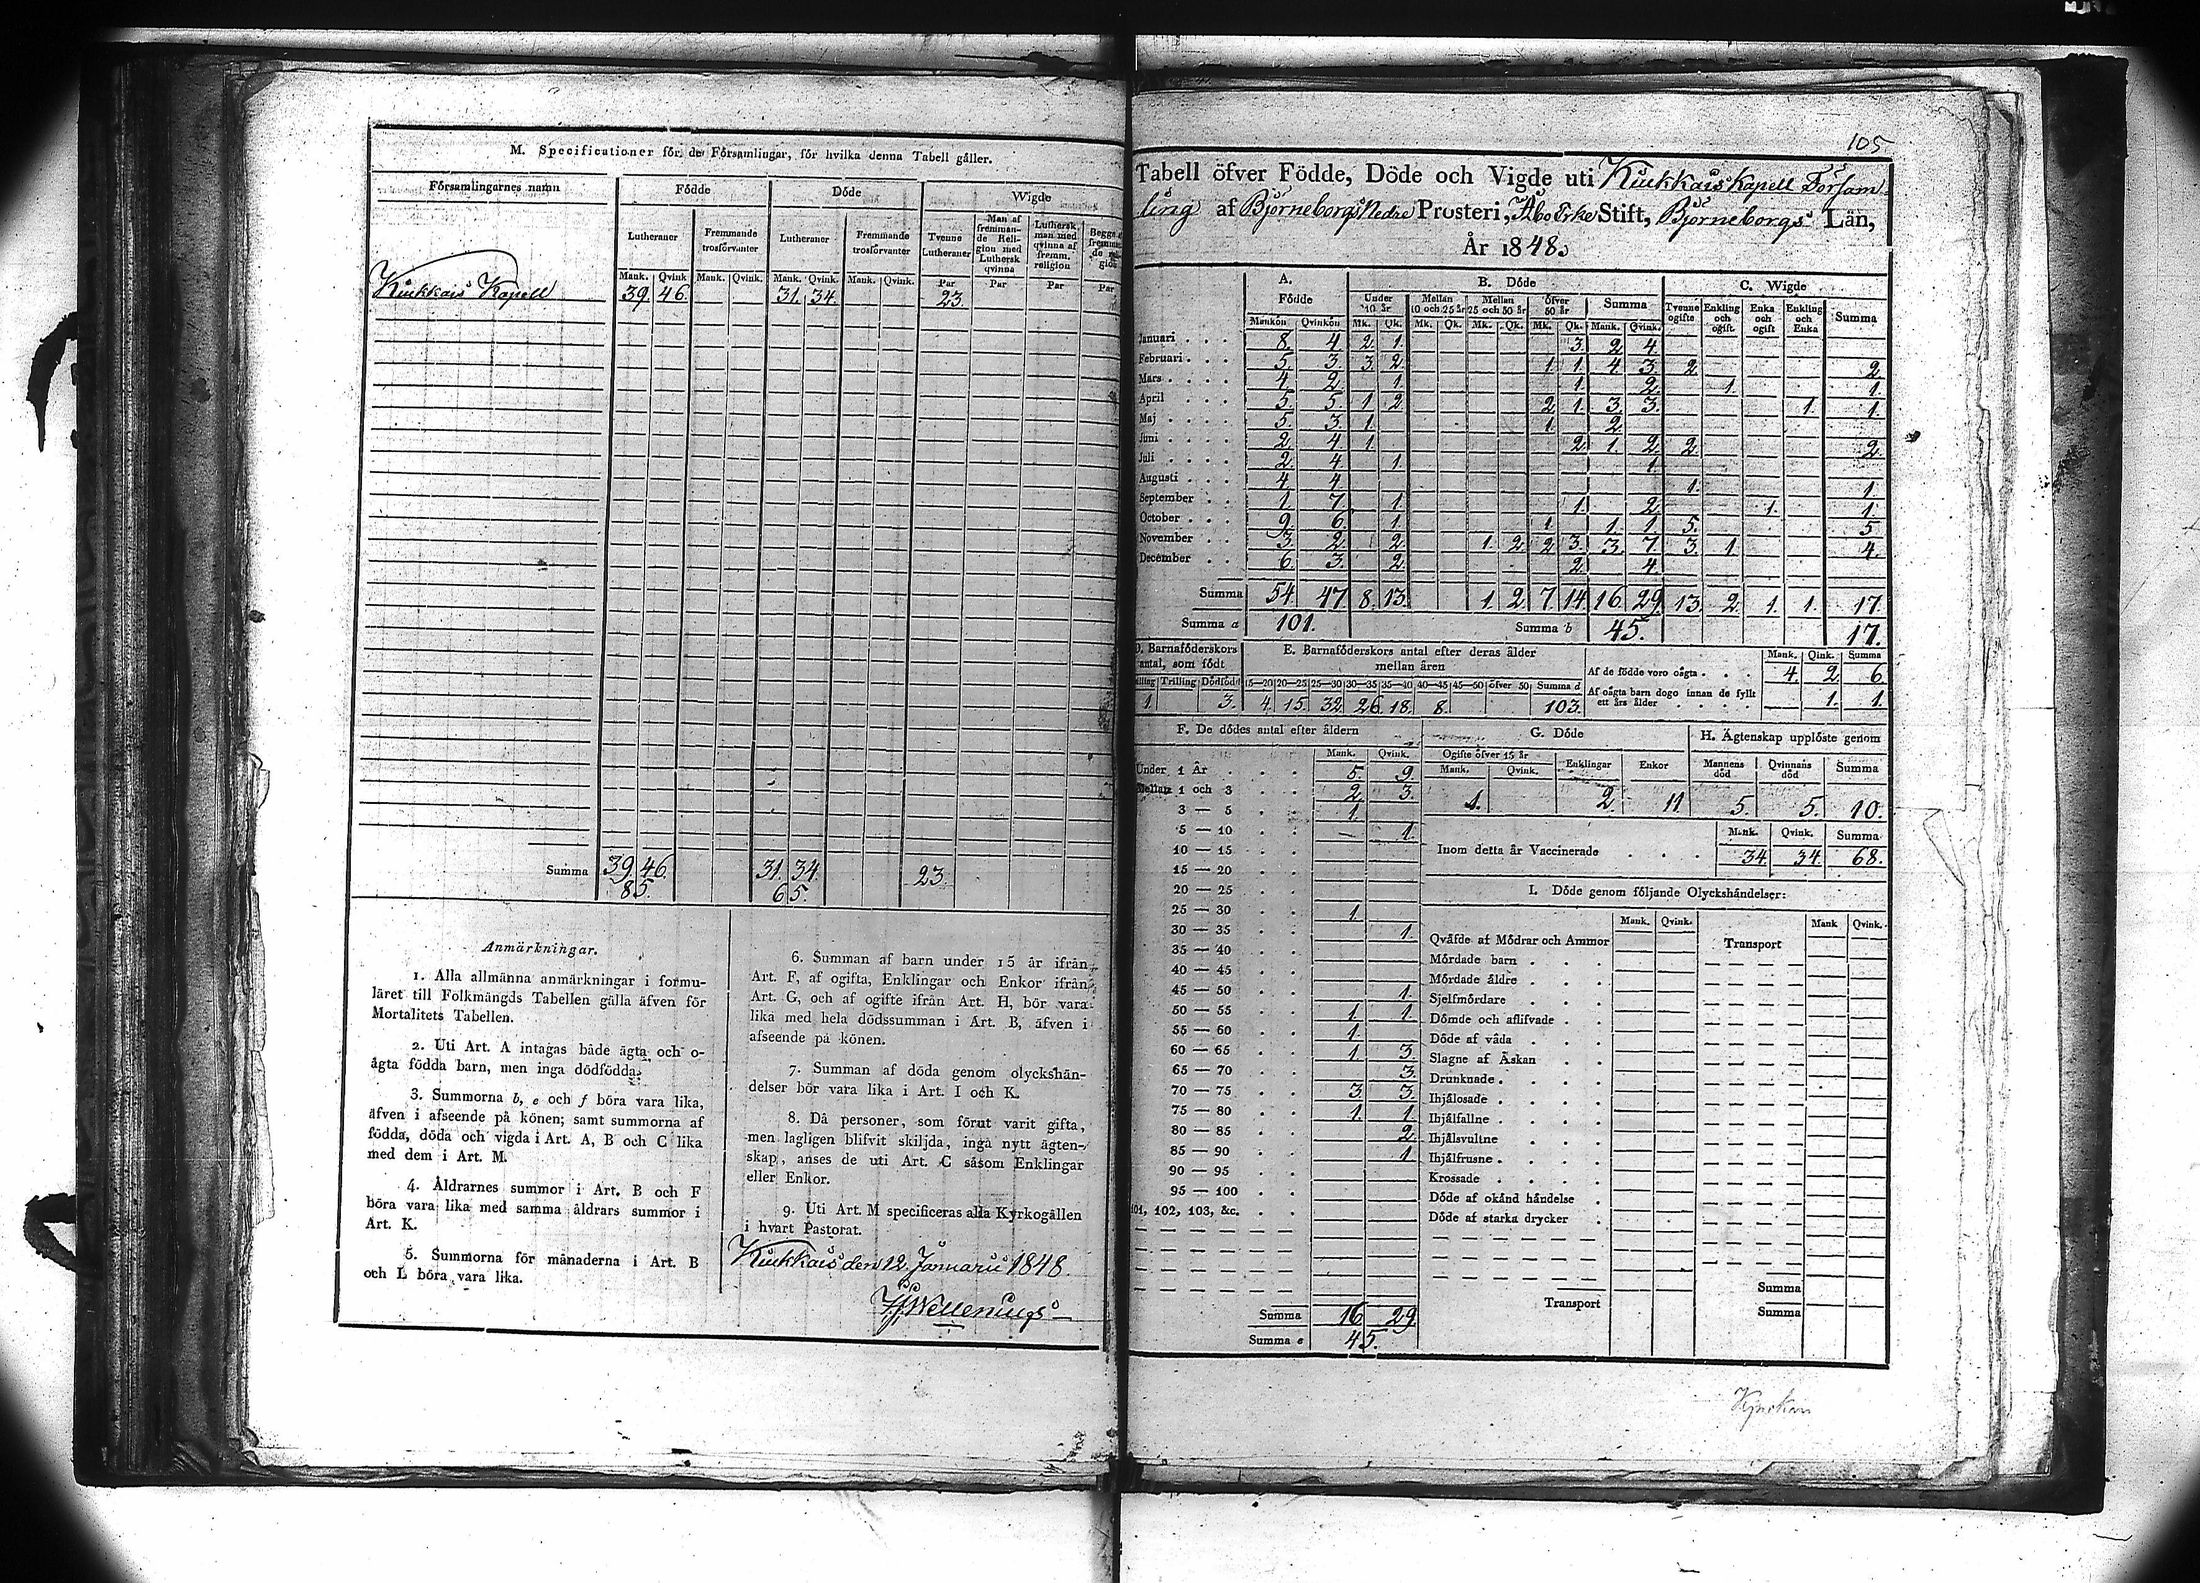 M. Specificationer för de Församlingar, för hvilka denna Tabell gäller.
Församlingarnes namn Födde Döde Wigde
Lutheraner Fremmande trosförvanter Lutheraner Fremmande trosförvanter Tvenne Lutheraner Man af fremmande Religion med Luthersk qvinna Luthersk man med qvinna af fremm. religion Begge
Mank. Qvink. Mank. Qvink. Mank. Qvink. Mank. Qvink. Par Par Par Par
Kiukkais Kapell 39. 46. 31. 34. 23.
Summa 39. 46. 31. 34. 23.
85. 65.
Anmärkningar.
1. Alla allmänna anmärkningar i formu-
läret till Folkmängds Tabellen gälla äfven för
Mortalitets Tabellen.
2. Uti Art. A intagas både ägta och o-
ägta födda barn, men inga dödfödda.
3. Summorna b, e och f böra vara lika,
äfven i afseende på könen; samt summorna af
födda, döda och vigda i Art. A, B och C lika
med dem i Art. M.
4. Åldrarnes summor i Art. B och F
böra vara lika med samma åldrars summor i
Art. K.
5. Summorna för månaderna i Art. B
och L böra vara lika.
6. Summan af barn under 15 år ifrån
Art. F, af ogifta, Enklingar och Enkor ifrån
Art. G, och af ogifte ifrån Art. H, bör vara
lika med hela dödssumman i Art. B, äfven i
afseende på könen.
7. Summan af döda genom olyckshän-
delser bör vara lika i Art. I och K.
8. Då personer, som förut varit gifta,
men lagligen blifvit skiljda, ingå nytt ägten-
skap, anses de uti Art. C såsom Enklingar
eller Enkor.
9. Uti Art. M specificeras alla Kyrkogällen
i hvart Pastorat.
Kiukkais den 12 Januarii 1848.
105
Tabell öfver Födde, Döde och Vigde uti Kiukkais Kapell Försam
ling af Björneborgs Nedre Prosteri, Åbo Erke Stift, Björneborgs Län,
År 1848.
A. Födde B. Döde C. Wigde
Under 10 år Mellan 10 och 25 år Mellan 25 och 50 år öfver 50 år Summa Tvenne ogifte Enkling och ogift Enka och ogift Enkling och Enka Summa
Mankön Qvinkön Mk. Qk. Mk. Qk. Mk. Qk. Mk. Qk. Mank. Qvink.
Januari 8. 4. 2. 1. 3. 2. 4.
Februari 5. 3. 3. 2. 1. 1. 4. 3. 2. 2.
Mars 4. 2. 1. 1. 2. 1. 1.
April 5. 5. 1. 2. 2. 1. 3. 3. 1. 1.
Maj 5. 3. 1. 1. 2.
Juni 2. 4. 1. 2. 1. 2. 2. 2.
Juli 2. 4. 1. 1.
Augusti 4. 4. 1. 1.
September 1. 7. 1. 1. 2. 1. 1.
October 9. 6. 1. 1. 1. 1. 5. 5.
November 3. 2. 2. 1. 2. 2. 3. 3. 7. 3. 1. 4.
December 6. 3. 2. 2. 4.
Summa 54. 47. 8. 13. 1. 2. 7. 14. 16. 29. 13. 2. 1. 1. 17.
Summa a 101. Summa b 45. 17.
D. Barnaföderskors antal, som födt
Trilling Dödfödd
1. 3.
E. Barnaföderskors antal efter deras ålder mellan åren
15—20 20—25 25—30 30—35 35—40 40—45 45—50 öfver 50 Summa d
4. 15. 32. 26. 18. 8. 103.
Mank. Qink. Summa
Af de födde voro oägta 4. 2. 6.
Af oägta barn dogo innan de fyllt ett års ålder 1. 1.
F. De dödes antal efter åldern
Mank. Qvink.
Under 1 År 5. 9.
Mellan 1 och 3 2. 3.
3 — 5 1.
5 — 10 1.
10 — 15
15 — 20
20 — 25
25 — 30 1.
30 — 35 1.
35 — 40
40 — 45
45 — 50 1.
50 — 55 1. 1.
55 — 60 1.
60 — 65 1. 3.
65 — 70 3.
70 — 75 3. 3.
75 — 80 1. 1.
80 — 85 2.
85 — 90 1.
90 — 95
95 — 100
101, 102, 103, &c.
Summa 16. 29.
Summa e 45.
G. Döde
Ogifte öfver 15 år Enklingar Enkor
Mank. Qvink.
1. 2. 11
H. Ägtenskap upplöste genom
Mannens död Qvinnans död Summa
5. 5. 10.
Mank. Qvink. Summa
Inom detta år Vaccinerade 34. 34. 68.
I. Döde genom följande Olyckshändelser:
Mank. Qvink. Transport Mank Qvink.
Qväfde af Mödrar och Ammor
Mördade barn
Mördade äldre
Sjelfmördare
Dömde och aflifvade
Döde af våda
Slagne af Åskan
Drunknade
Ihjälosade
Ihjälfallne
Ihjälsvultne
Ihjälfrusne
Krossade
Döde af okänd händelse
Döde af starka drycker
Summa
Transport Summa